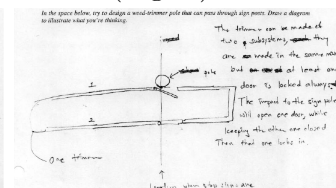 In the space below, try to design a weed-trimmer pole that can pass through sign posts. Draw a diagram
to illustrate what you're thinking.
The trimmer can be made of
two subsystems, they
are made in the same way
but at least one
door is locked always
The impact to the sign pole
will open one door, while
keeping the other one closed
Then that one locks in.
pole
1
2
One trimmer